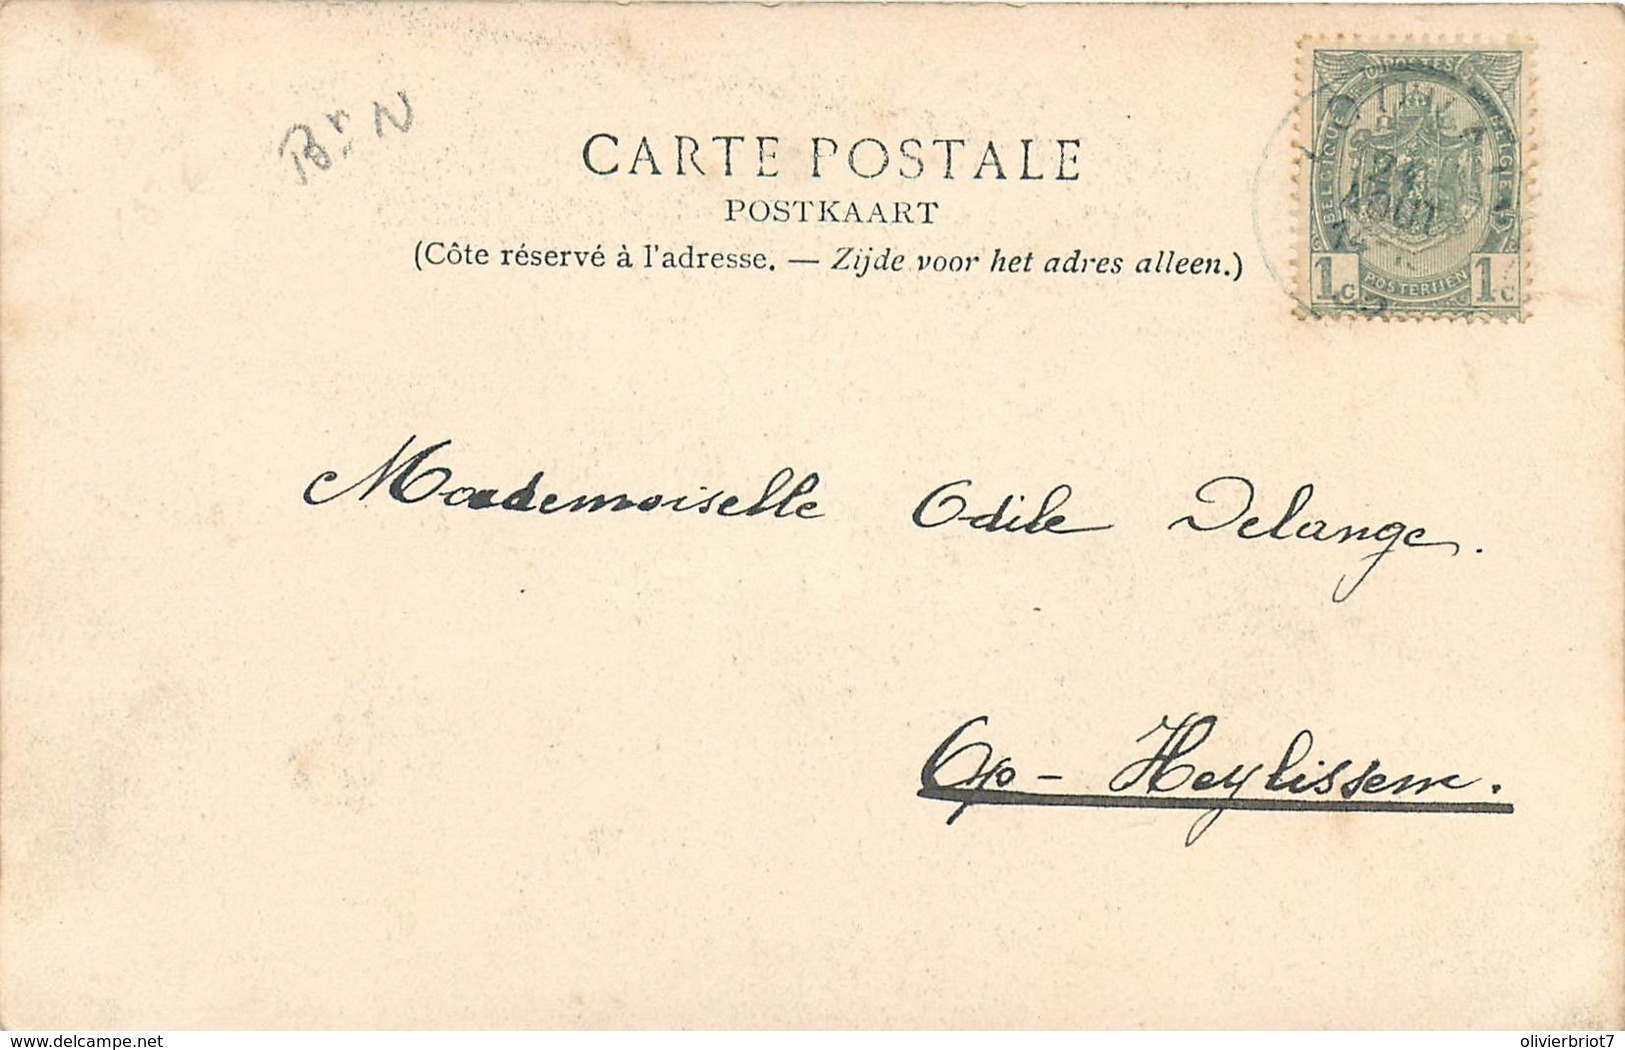 Bn N
CARTE POSTALE
POSTKAART
(Côte réservé à l'adresse. — Zijde voor het adres alleen.)
POSTES
BELGIQUE BELGIE
POSTERIJEN
1c 1c
24
AOUT
Mademoiselle Odile Delange.
Op-Heylissem.
www.delcampe.net olivierbriot7